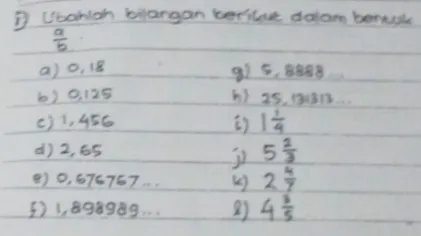 1) Ubahlah bilangan berikut dalam bentuk
a/b
a) 0,18
b) 0,125
c) 1,456
d) 2,65
e) 0,676767...
f) 1,898989...
g) 5,8888...
h) 25,131313...
i) 1 1/4
j) 5 2/3
k) 2 4/7
l) 4 3/5